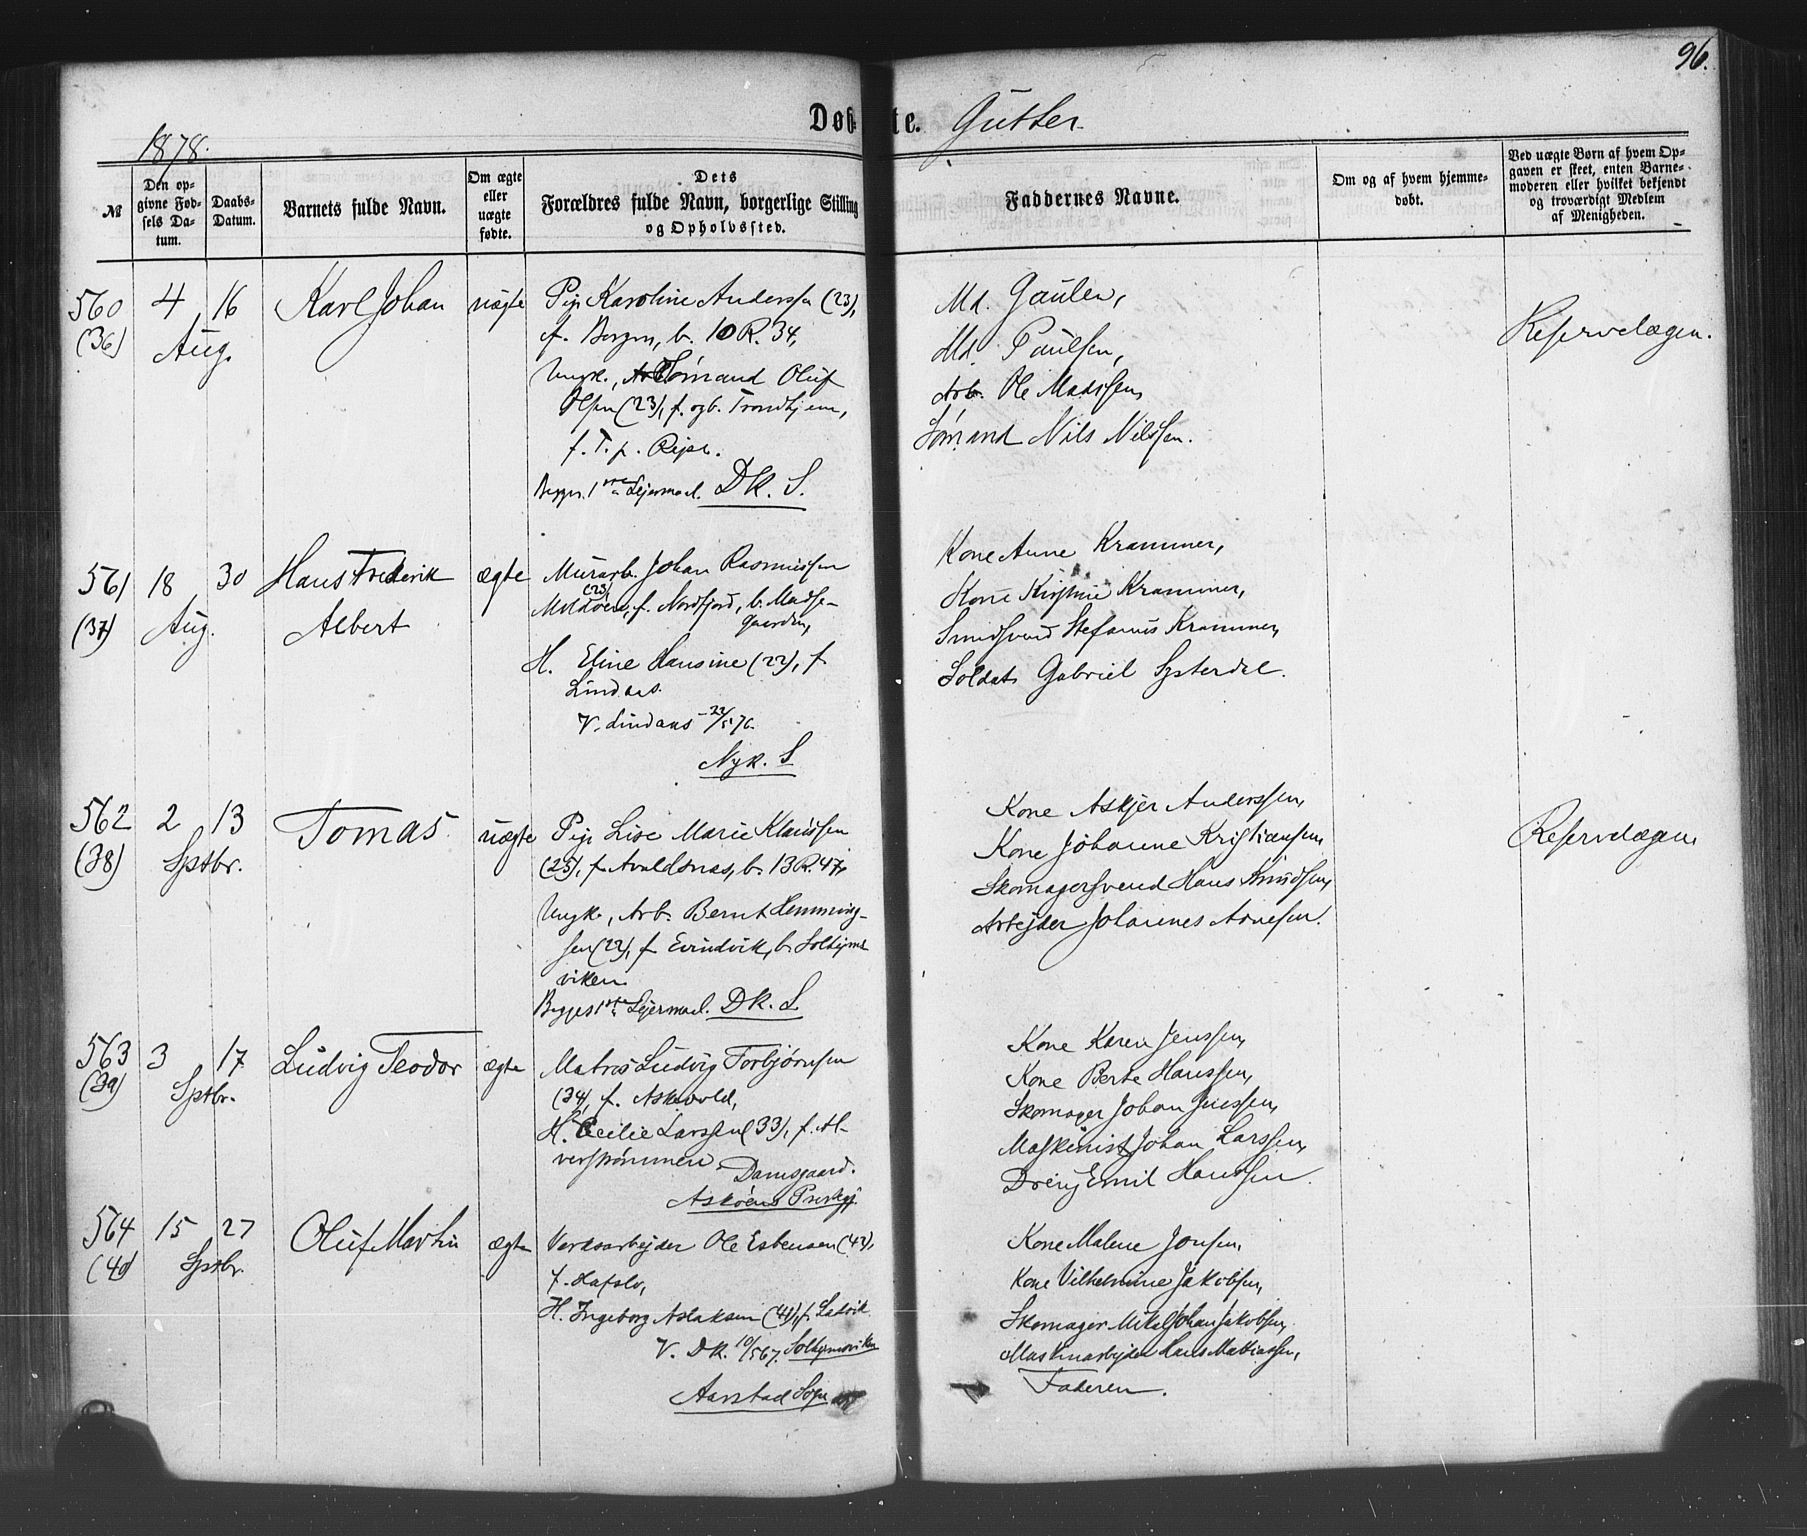 96.
1878.
Døbte. Gutter
№
Den opgivne Fødsels Datum.
Daabs-Datum.
Barnets fulde Navn.
Om ægte eller uægte fødte.
Dets Forældres fulde Navn, borgerlige Stilling og Opholdssted.
Faddernes Navne.
Om og af hvem hjemmedøbt.
Ved uægte Børn af hvem Opgaven er skeet, enten Barnemoderen eller hvilket bekjendt og troværdigt Medlem af Menigheden.
560 (36)
4 16
Aug.
Karl Johan
uægte
Pige Karoline Anderssen (23),
f. Bergen, b. 10 R. 34,
Ungk., Sømand Oluf
Olsen (23), f. og b. Trondhjem,
f. T. p. Rejse.
Begges 1ste Lejermaal. DK. S.
Md. Gaulen,
Md. Paulsen,
Arb. Ole Madssen,
Sømand Nils Nilssen.
Reservelægen.
561 (37)
18 30
Aug.
Hans Frederik
Albert
ægte
Murarb. Johan Rasmussen
Moldøen (23), f. Nordfjord, b. Madse-
gaarden,
H. Eline Hansine (22), f.
Lindaas.
V. Lindaas 22/5 76.
Nyk. S
Kone Anne Krammer,
Kone Kristine Krammer,
Smedsvend Stefanus Krammer,
Soldat Gabriel Systerdal.
562 (38)
2 13
Sptbr.
Tomas
uægte
Pige Lise Marie Klaussen
(25), f. Avaldsnas, b. 13 R. 47,
Ungk., Arb. Bernt Hemming-
sen (22), f. Evindvik, b. Solhejms-
viken.
Begges 1ste Lejermaal. DK. S.
Kone Askjer Anderssen,
Kone Johanne Kristiansen,
Skomagersvend Hans Knudsen,
Arbejder Johannes Arnesen.
Reservelægen
563 (39)
3 17
Sptbr.
Ludvig Teodor
ægte
Matros Ludvig Torbjørnsen
(34), f. Askevold,
H. Cecilie Larssen (33), f. Al-
verstrømmen. Damsgaard.
Askøens Prestegj
Kone Karen Jenssen,
Kone Berte Hanssen,
Skomager Johan Jenssen,
Maskinist Johan Larssen,
Dreng Emil Hanssen.
564 (40)
15 27
Sptbr.
Oluf Martin
ægte
Verksarbejder Ole Esbensen (42),
f. Hafslo,
H. Ingeborg Aslaksen (41), f. Ladvik
V. DK. 10/5 67. Solhejmsviken
Aarstad Sogn
Kone Malene Jonsen,
Kone Vilhelmine Jakobsen,
Skomager Mikal Johan Jakobsen,
Maskinarbejder Hans Mattiassen,
Faderen.